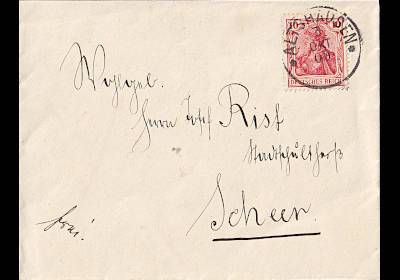 ALTSHAUSEN
3
OKT
DEUTSCHES REICH
Wohlgeb.
Herrn Josef Rist
Stadtschultheiß
Scheer.
frei!